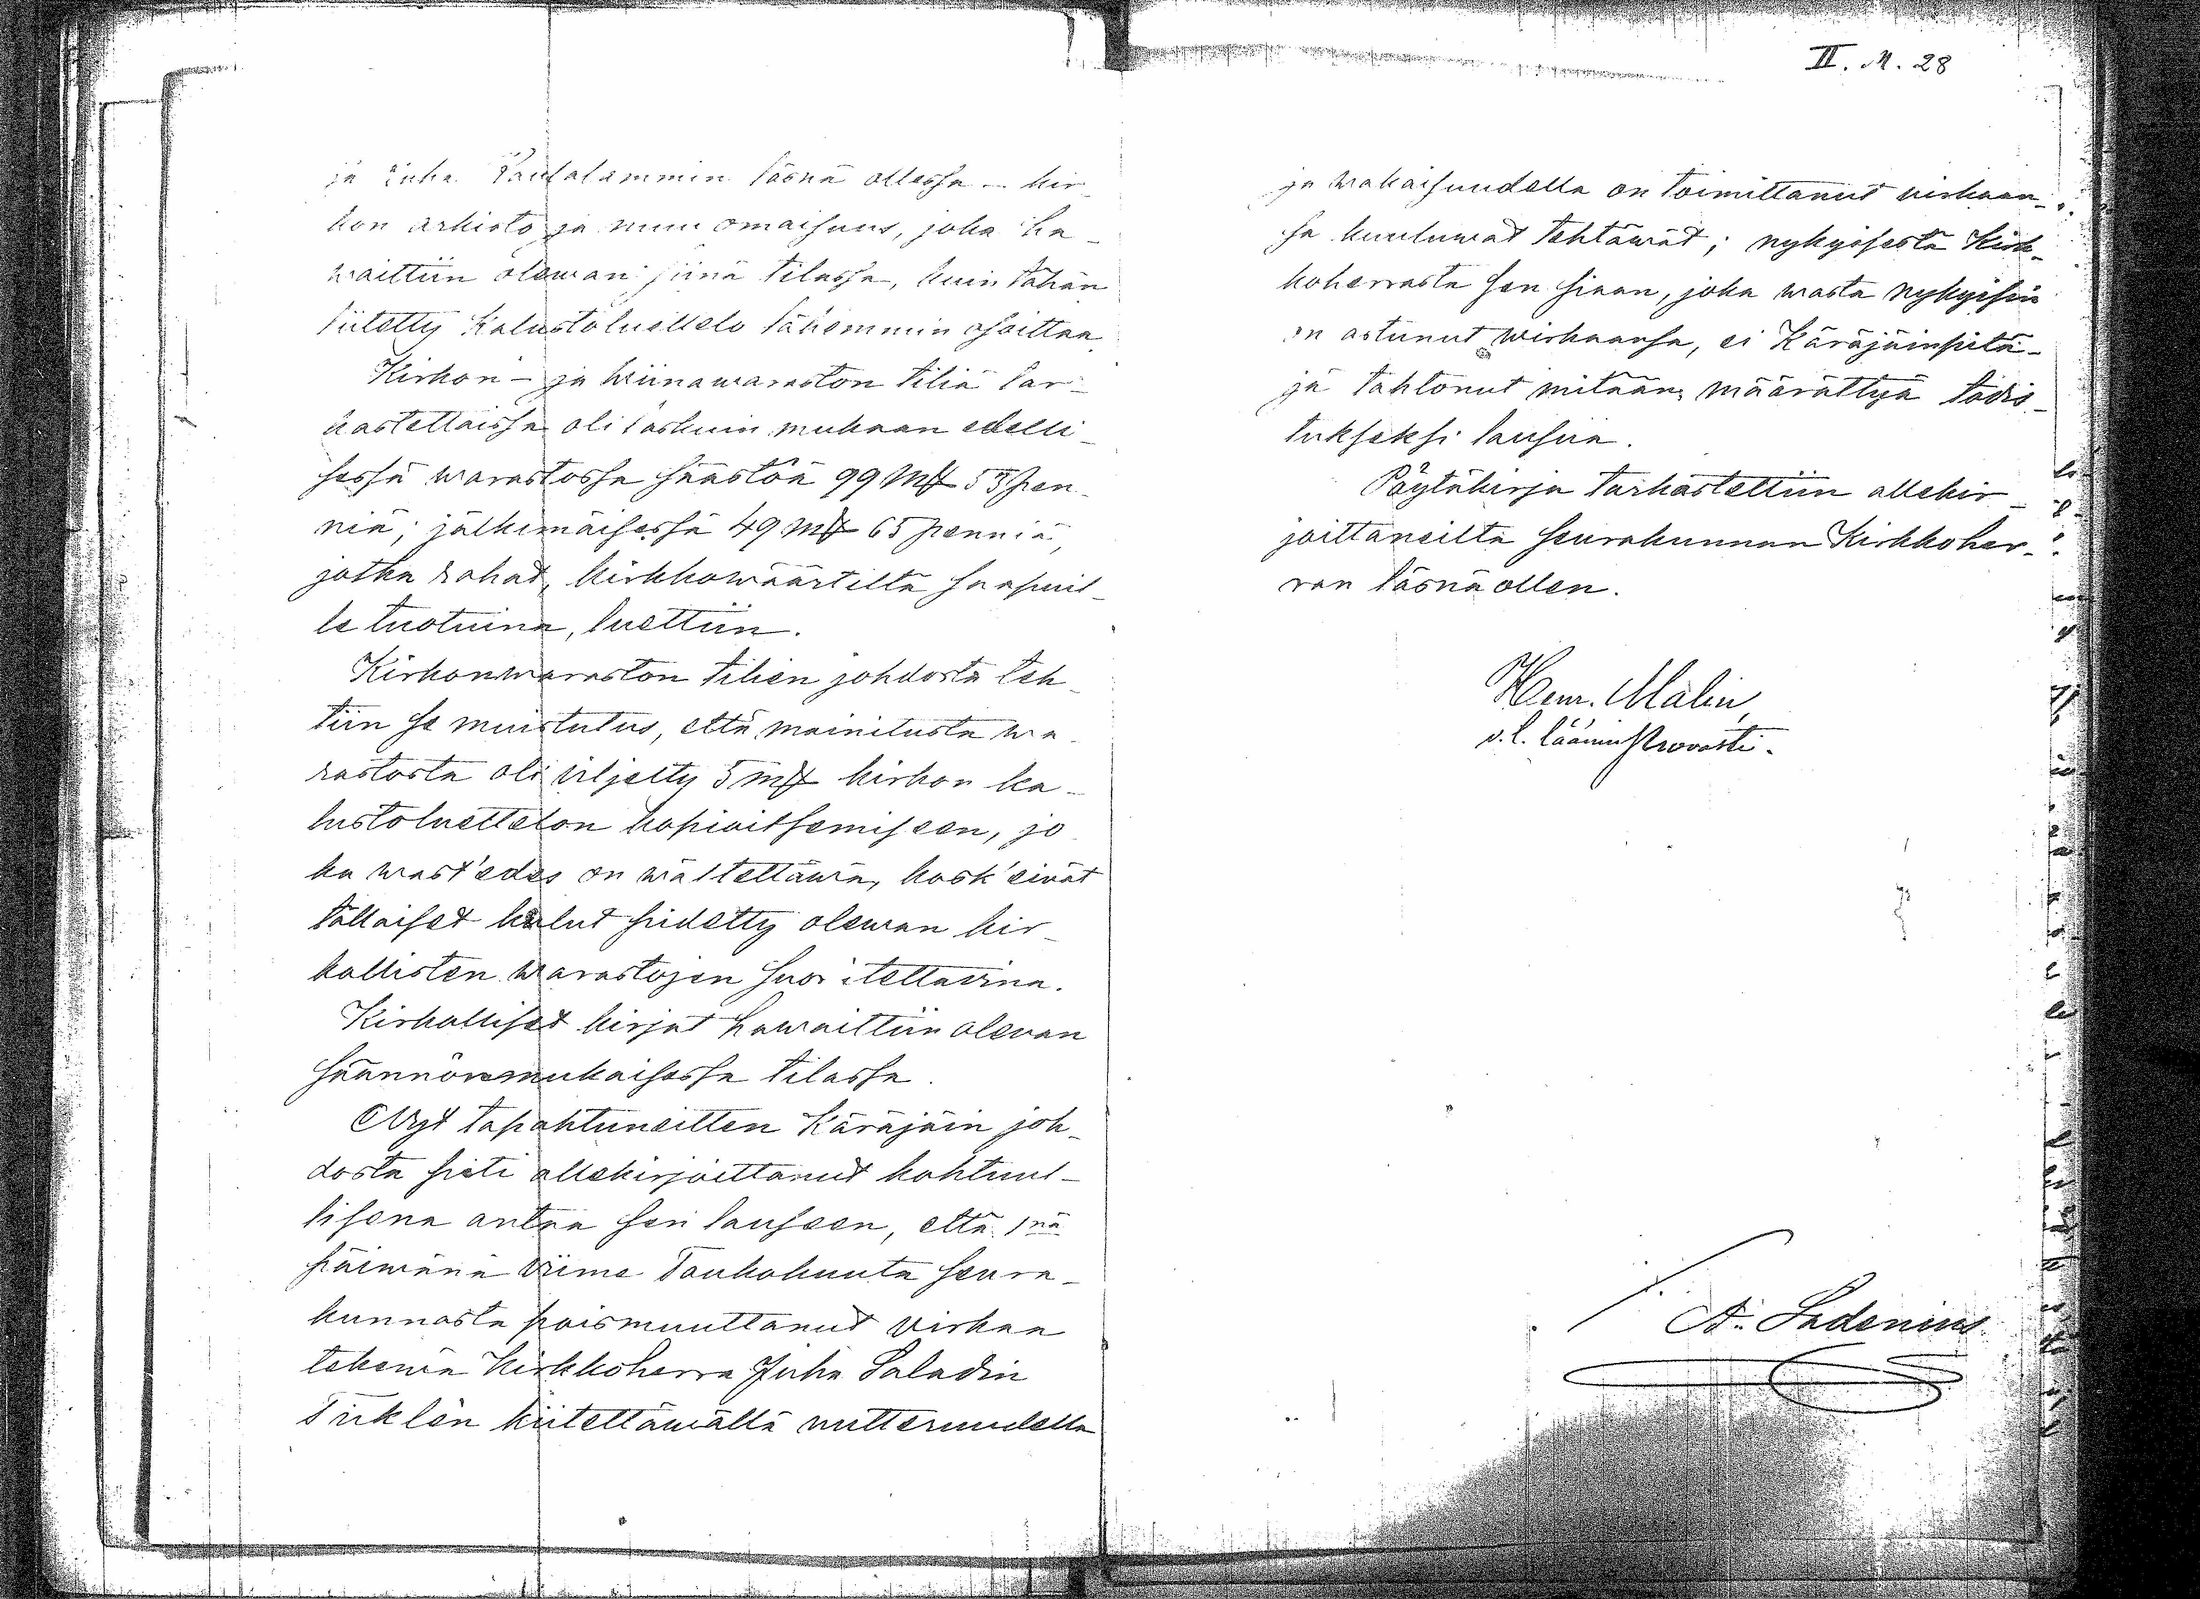 ja Juha Rautalammin läsnä ollessa kir-
kon arkisto ja muu omaisuus, joka ha-
waittiin olewan siinä tilassa, kuin tähän
liitetty Kalustoluettelo lähemmin osoittaa.
Kirkon- ja wiinawaraston tiliä tar-
kastettaissa oli laskuin mukaan edelli-
sessä warastossa säästöä 99 Mk 53 pen-
niä; jälkimäisessä 49 Mk 65 penniä,
jotka rahat, kirkkowäärtiltä saapuil-
le tuotuina, luettiin.
Kirkonwaraston tilien johdosta teh-
tiin se muistutus, että mainitusta wa-
rastosta oli viljelty 5 Mk kirkon ka-
lustoluettelon kopioitsemiseen, jo-
ka wast'edes on wältettäwä, kosk'eivät
tällaiset kulut pidetty olewan kir-
kollisten warastojen suoritettavina.
Kirkolliset kirjat hawaittiin olevan
säännönmukaisessa tilassa.
Nyt tapahtuneitten Käräjäin joh-
dosta piti allekirjoittanut kohtuul-
lisena antaa sen lauseen, että 1nä
päiwänä viime Toukokuuta seura-
kunnasta poismuuttanut virkaa
tekewä Kirkkoherra Juha Saladin
Tiiklén kiitettäwällä nuttersuudella
II. M. 28
ja wakaisuudella on toimittanut virkaan-
sa kuuluwat tehtäwät; nykyisestä Kirk-
koherrasta sen siaan, joka wasta nykyisin
on astunut wirkaansa, ei Käräjäinpitä-
jä tahtonut mitään määrättyä todis-
tukseksi lausua.
Pöytäkirja tarkastettiin allekir-
joittaneilta seurakunnan Kirkkoher-
ran läsnä ollen.
Henr. Malin,
v. t. lääninProvasti.
A. Ladenius